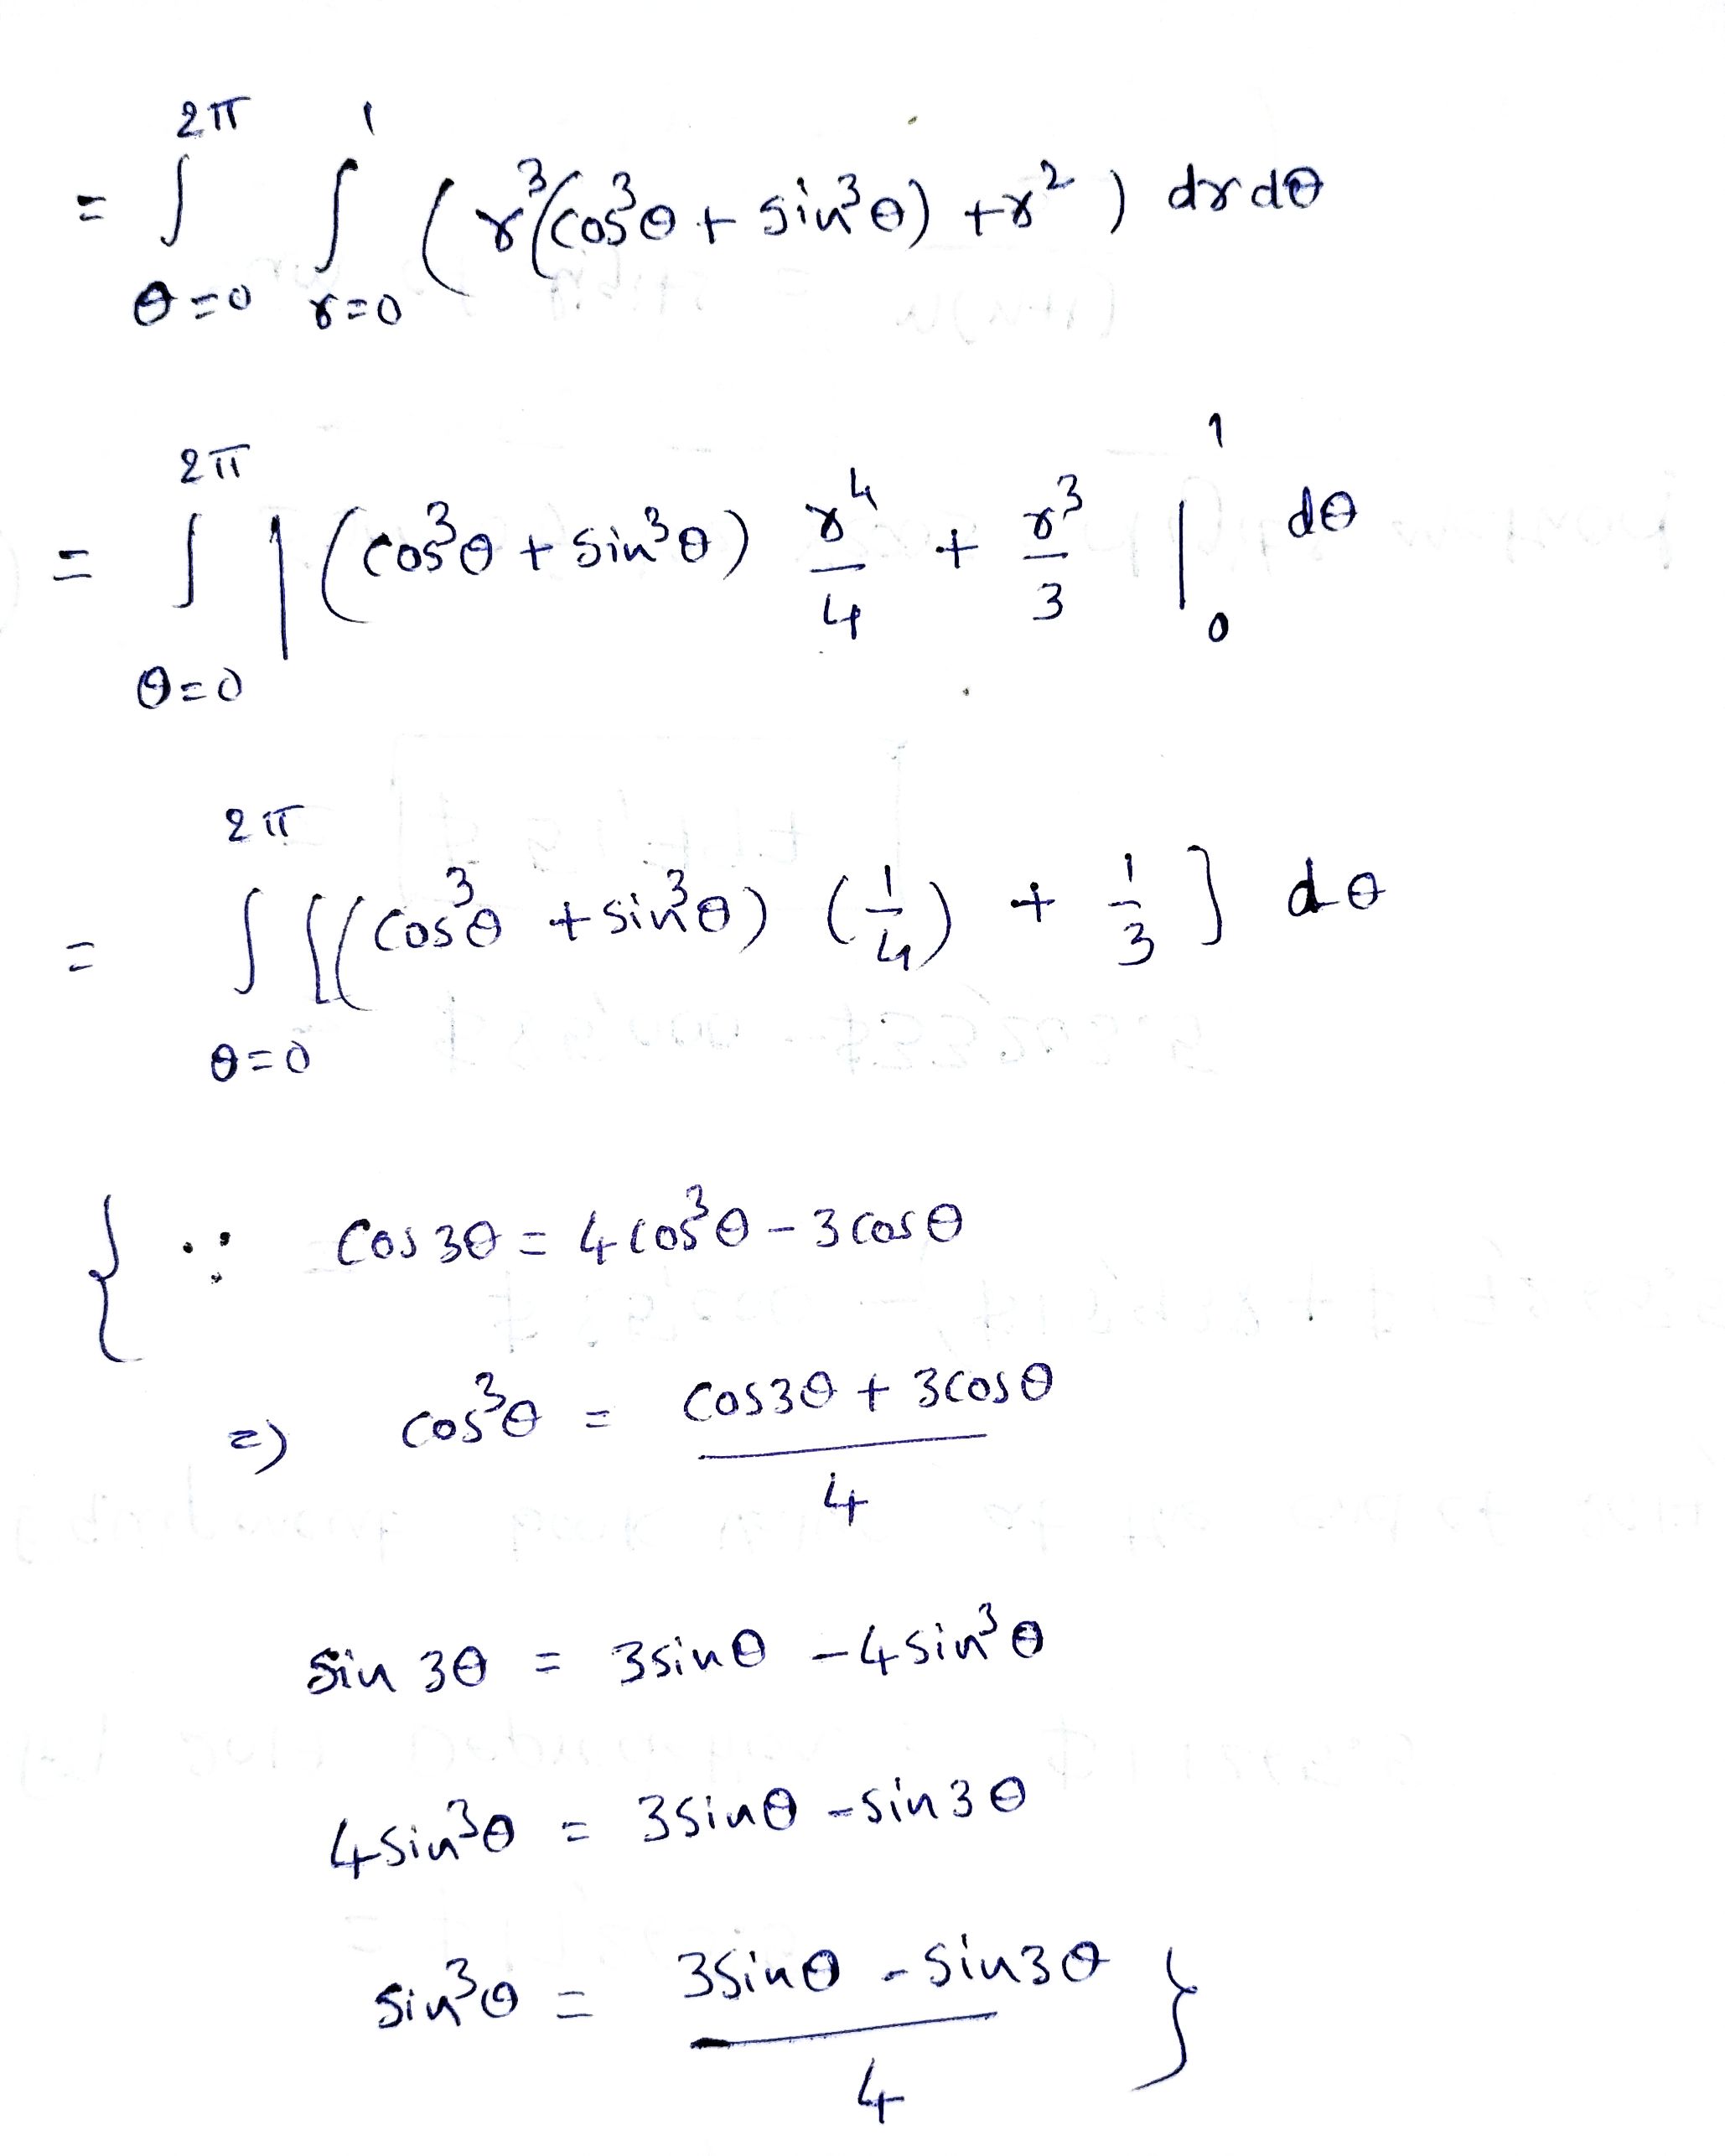 = ∫_{θ=0}^{2π} ∫_{r=0}^{1} (r³(cos³θ + sin³θ) + r²) dr dθ
= ∫_{θ=0}^{2π} | (cos³θ + sin³θ) r⁴/4 + r³/3 |_0^1 dθ
= ∫_{θ=0}^{2π} [(cos³θ + sin³θ) (1/4) + 1/3] dθ
{ ∵ cos3θ = 4cos³θ - 3cosθ
=> cos³θ = (cos3θ + 3cosθ)/4
sin 3θ = 3sinθ - 4sin³θ
4sin³θ = 3sinθ - sin3θ
sin³θ = (3sinθ - sin3θ)/4 }